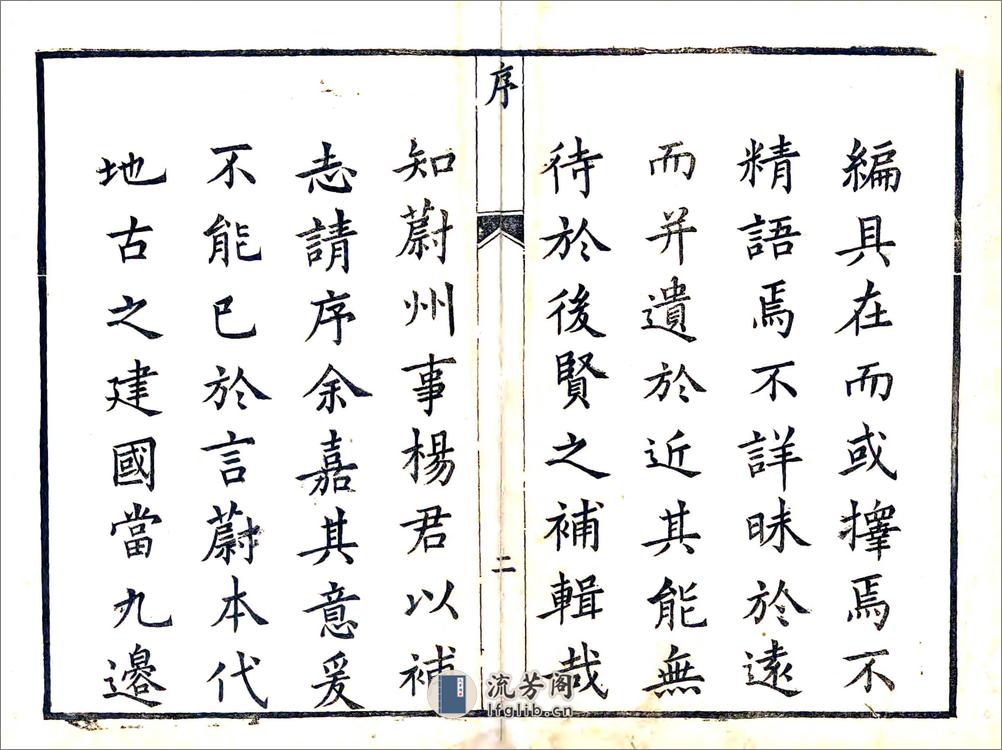 編具在而或擇焉不
精語焉不詳昧於遠
而并遺於近其能無
待於後賢之補輯哉
序
二
知蔚州事楊君以補
志請序余嘉其意爰
不能已於言蔚本代
地古之建國當九邊
流芳阁
lfglib.cn